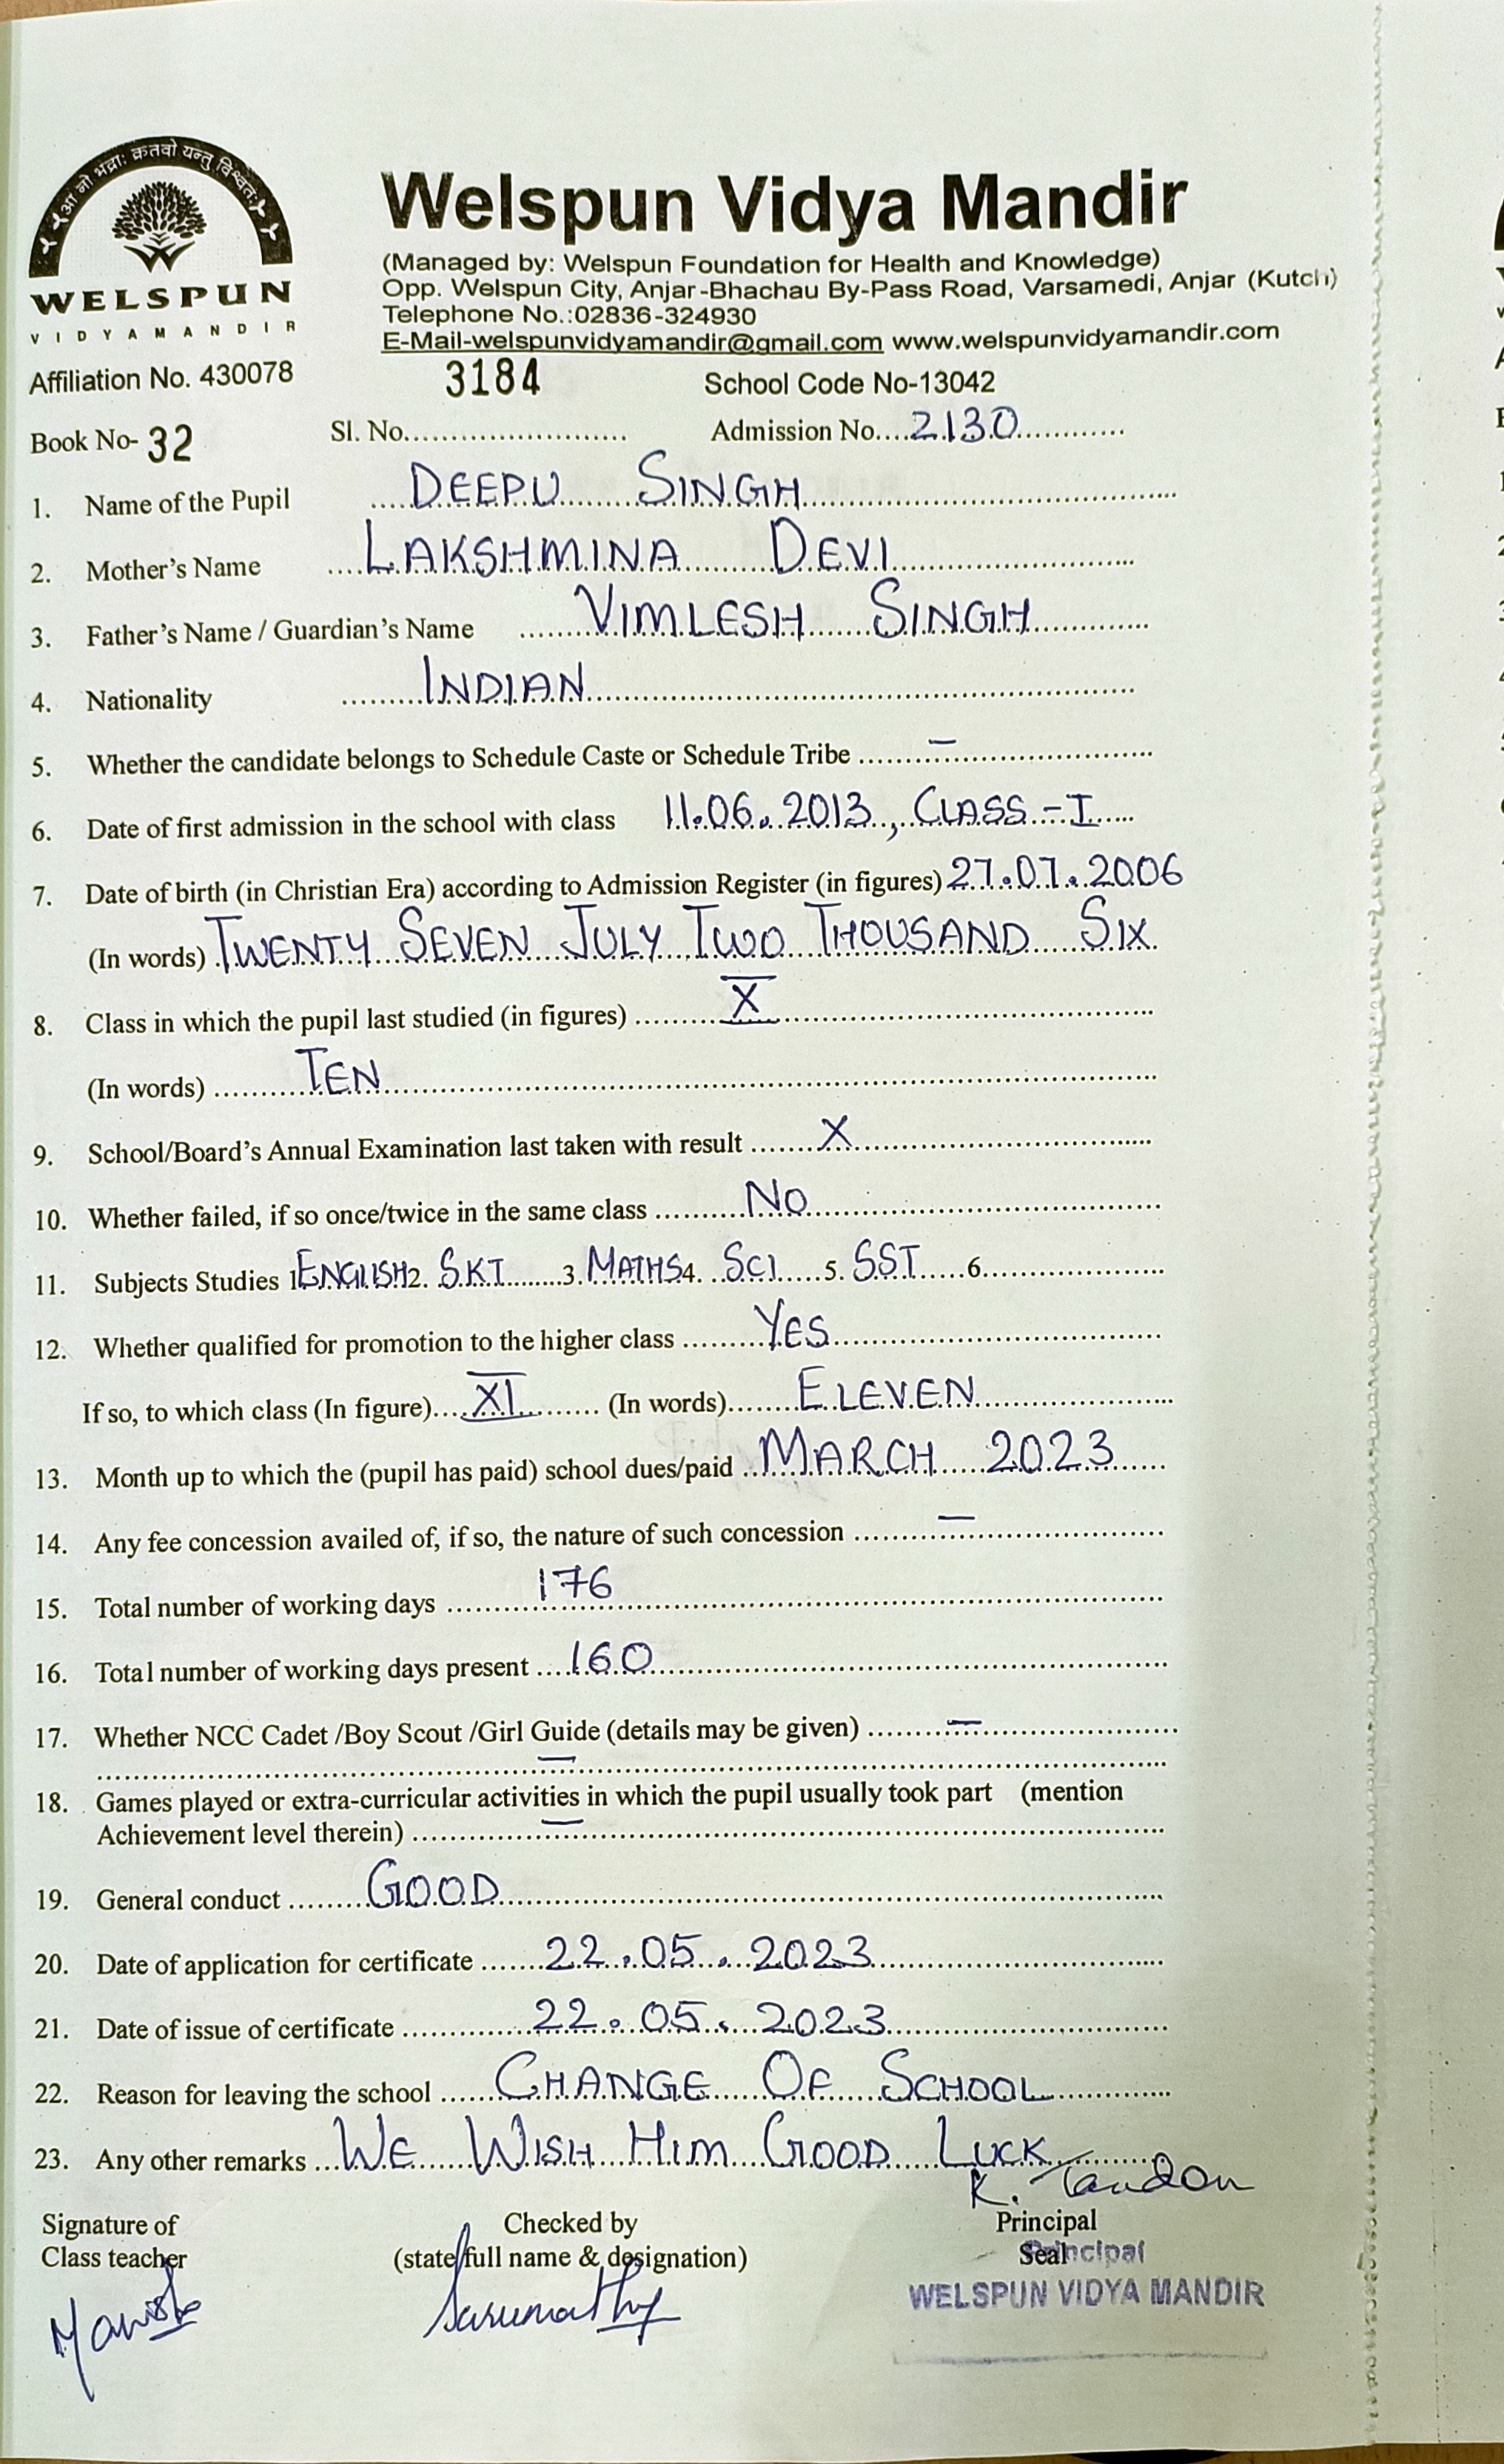 आ नो भद्राः क्रतवो यन्तु विश्वतः
WELSPUN
VIDYAMANDIR
Welspun Vidya Mandir
(Managed by: Welspun Foundation for Health and Knowledge)
Opp. Welspun City, Anjar-Bhachau By-Pass Road, Varsamedi, Anjar (Kutch)
Telephone No.:02836-324930
E-Mail-welspunvidyamandir@gmail.com www.welspunvidyamandir.com
Affiliation No. 430078 3184 School Code No-13042
Book No- 32 Sl. No........................ Admission No....2130............
1. Name of the Pupil ....DEEPU SINGH....
2. Mother's Name ....LAKSHMINA DEVI....
3. Father's Name / Guardian's Name ....VIMLESH SINGH....
4. Nationality ....INDIAN....
5. Whether the candidate belongs to Schedule Caste or Schedule Tribe ....–....
6. Date of first admission in the school with class 11.06.2013, CLASS-I....
7. Date of birth (in Christian Era) according to Admission Register (in figures) 27.07.2006
(In words) TWENTY SEVEN JULY TWO THOUSAND SIX.
8. Class in which the pupil last studied (in figures) ....X....
(In words) ....TEN....
9. School/Board's Annual Examination last taken with result ....X....
10. Whether failed, if so once/twice in the same class ....NO....
11. Subjects Studies 1 ENGLISH 2. SKT....3. MATHS 4. SCI....5. SST....6....
12. Whether qualified for promotion to the higher class ....YES....
If so, to which class (In figure)....XI.... (In words)....ELEVEN....
13. Month up to which the (pupil has paid) school dues/paid ....MARCH 2023....
14. Any fee concession availed of, if so, the nature of such concession ....–....
15. Total number of working days ....176....
16. Total number of working days present ....160....
17. Whether NCC Cadet /Boy Scout /Girl Guide (details may be given) ....–....
....–....
18. Games played or extra-curricular activities in which the pupil usually took part (mention
Achievement level therein) ....–....
19. General conduct ....GOOD....
20. Date of application for certificate ....22.05.2023....
21. Date of issue of certificate ....22.05.2023....
22. Reason for leaving the school ....CHANGE OF SCHOOL....
23. Any other remarks ...WE WISH HIM GOOD LUCK....
K. Tandon
Signature of Checked by Principal
Class teacher (state full name & designation) Seal
Principal
WELSPUN VIDYA MANDIR